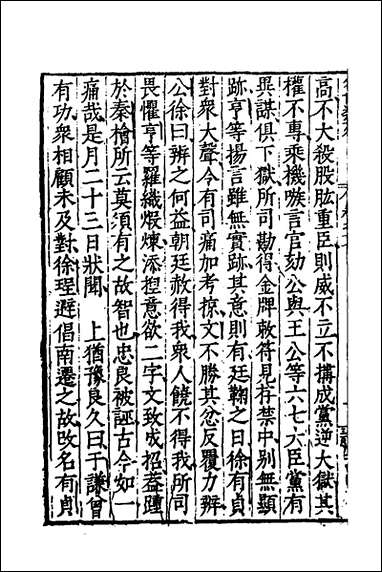 高不大殺股肱重臣則威不立不搆成黨逆大獄其
權不專乘機嗾言官劾公與王公等六七大臣黨有
異謀俱下獄所司勘得金牌敕符見存禁中别無顯
跡亨等揚言雖無實跡其意則有廷鞠之日徐有貞
對衆大聲令有司痛加考掠文不勝其忿反覆力辨
公徐曰辨之何益朝廷赦得我衆人饒不得我所司
畏懼亨等羅織煆煉添揑意欲二字文致成招葢踵
於秦檜所云莫須有之故智也忠良被誣古今如一
痛哉是月二十三日狀聞 上猶豫良久曰于謙曾
有功衆相顧未及對徐珵遲倡南遷之故改名有貞